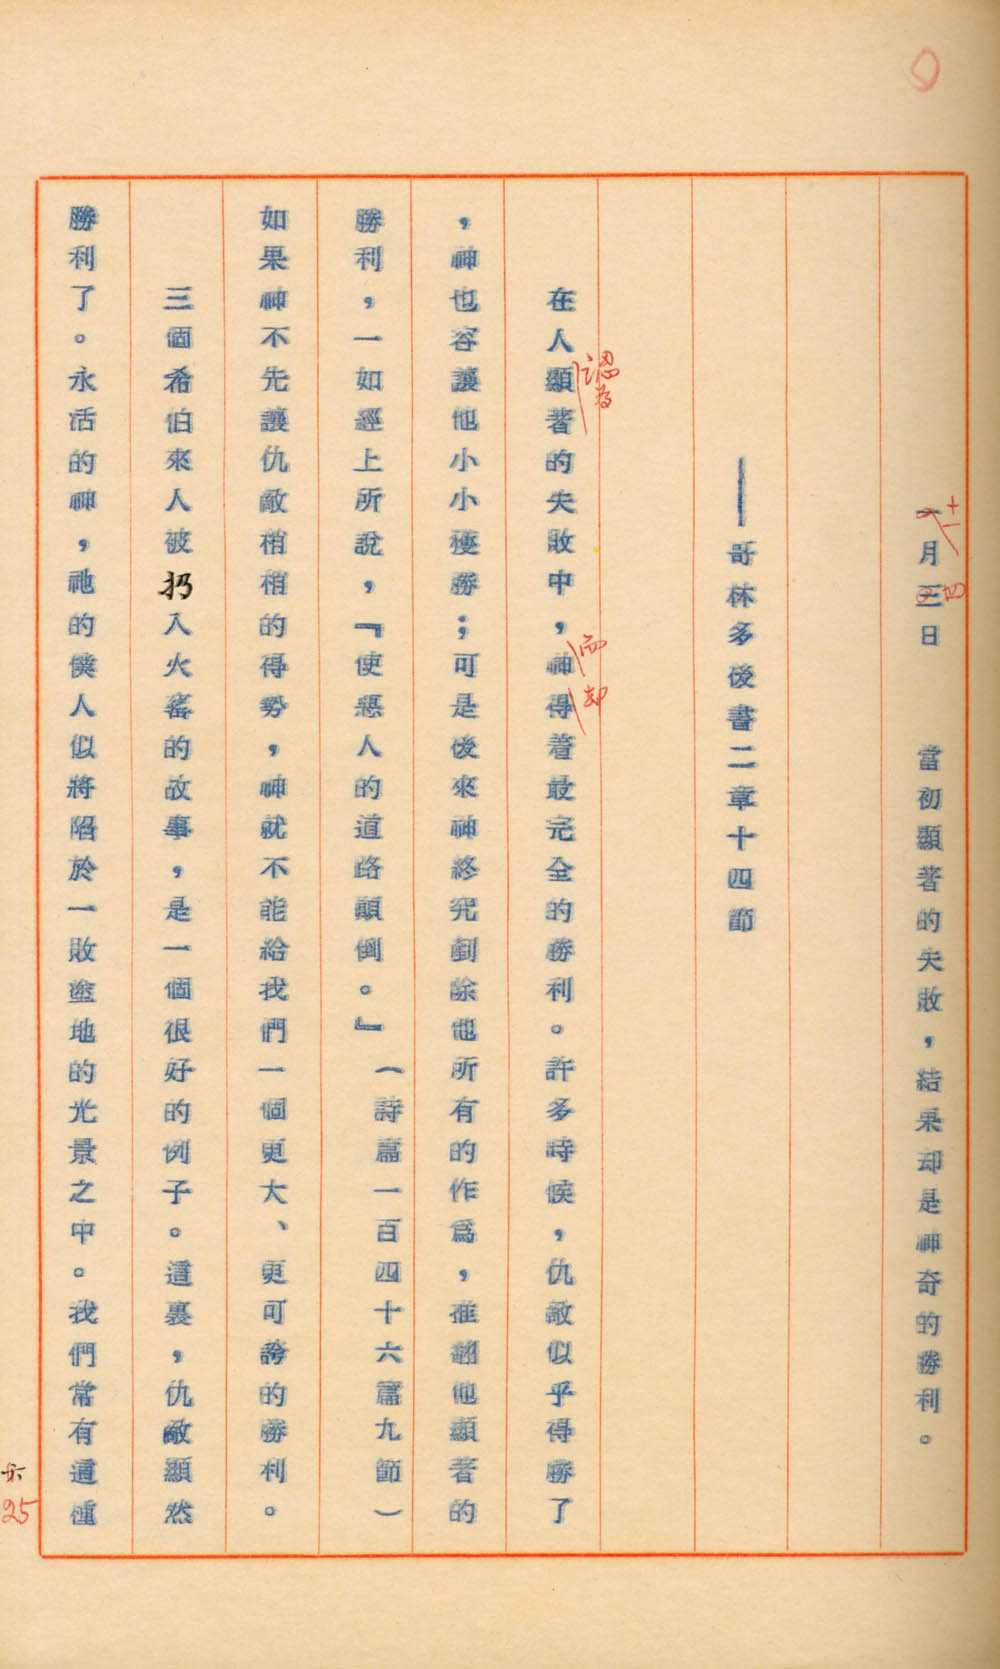 十一
一月三日 當初顯著的失敗，結果却是神奇的勝利。
四
——哥林多後書二章十四節
認為
而 却
在人顯著的失敗中，神得着最完全的勝利。許多時候，仇敵似乎得勝了
，神也容讓他小小獲勝；可是後來神終究剷除他所有的作爲，推翻他顯著的
勝利，一如經上所說，『使惡人的道路顛倒。』（詩篇一百四十六篇九節）
如果神不先讓仇敵稍稍的得勢，神就不能給我們一個更大、更可誇的勝利。
三個希伯來人被扔入火窰的故事，是一個很好的例子。這裏，仇敵顯然
勝利了。永活的神，祂的僕人似將陷於一敗塗地的光景之中。我們常有這種
25